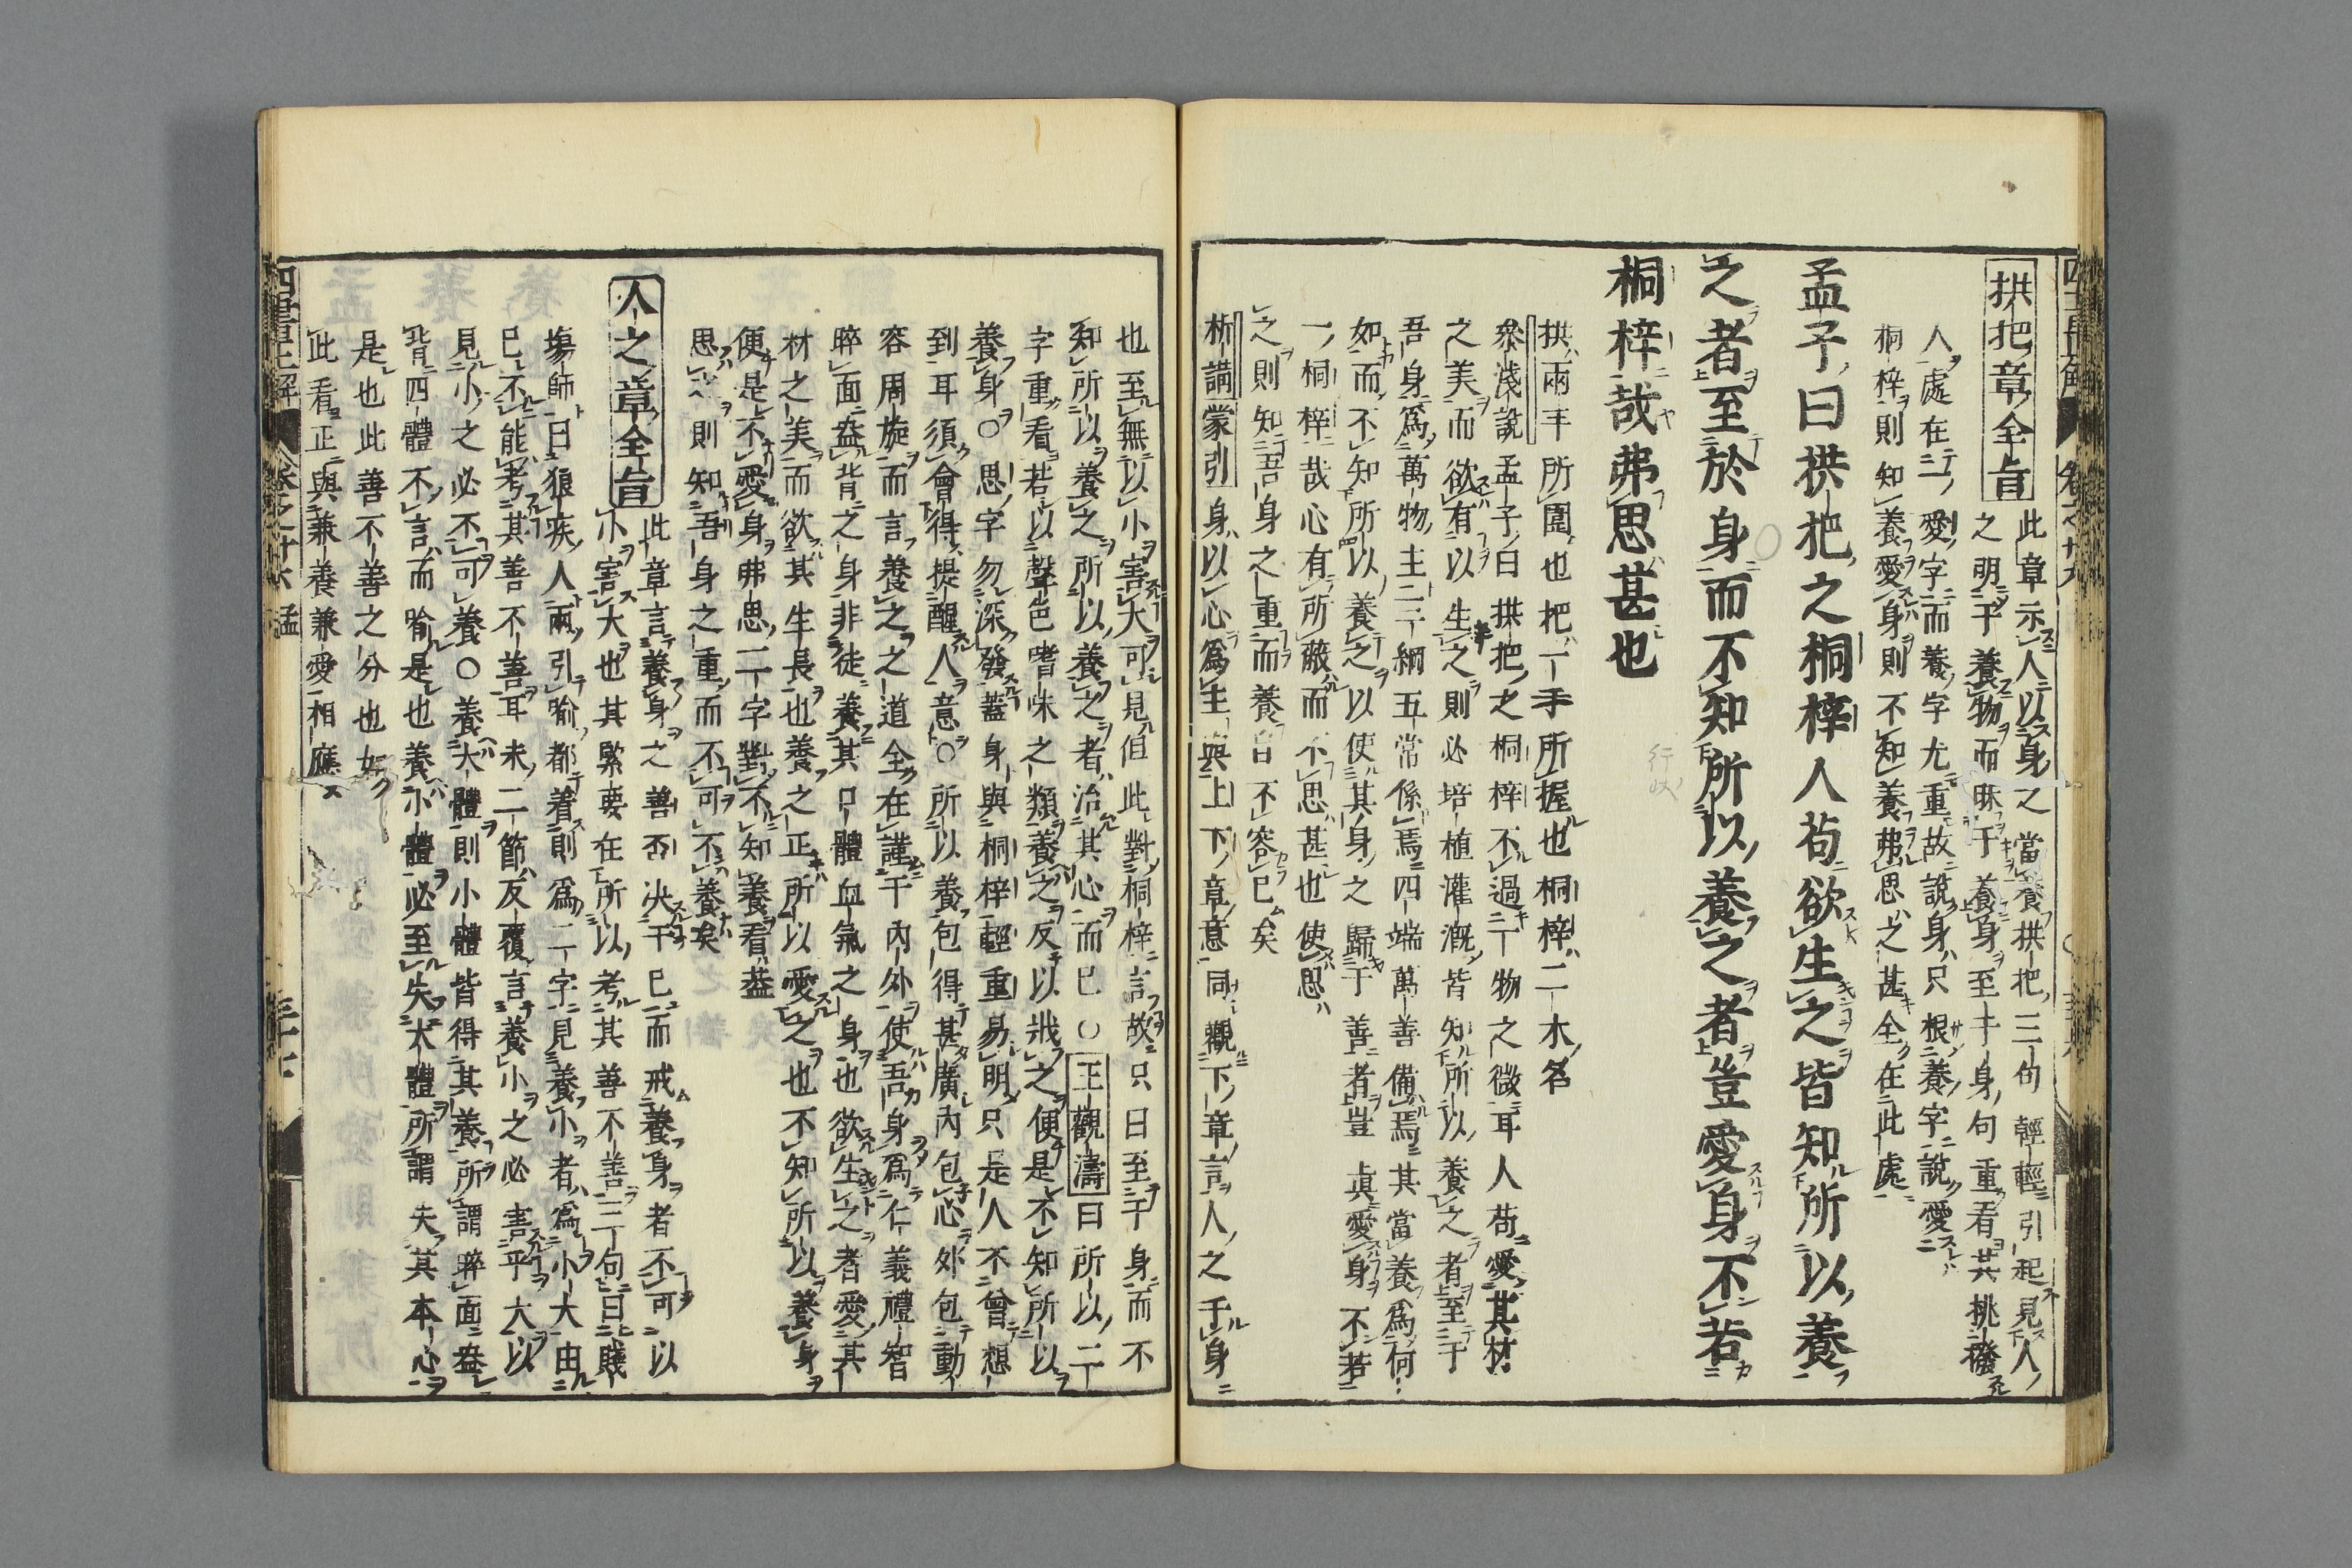 拱把章全旨
此章示人以身之當養拱把三句輕輕引起見人
之明于養物而昧于養身至于身句重看其挑撥
人處在二愛字而養字尤重故說身只根養字說愛
桐梓則知養愛身則不知養弗思之甚全在此處
孟子曰拱把之桐梓人苟欲生之皆知所以養
之者至於身而不知所以養之者豈愛身不若
桐梓哉弗思甚也
拱兩手所圍也把一手所握也桐梓二木名
叅淺說孟子曰拱把之桐梓不過一物之微耳人苟愛其材
之美而欲有以生之則必培植灌漑皆知所以養之者至于
吾身爲萬物主三綱五常係焉四端萬善備焉其當養爲何
如而不知所以養之以使其身之歸于善者豈眞愛身不若
一桐梓哉心有所蔽而不思甚也使思
之則知吾身之重而養自不容已矣
析講蒙引身以心爲主與上下章意同觀下章言人之于身
也至無以小害大可見但此對桐梓言故只曰至于身而不
知所以養之所以養之者治其心而已○王觀濤曰所以二
字重看若以聲色嗜味之類養之反以戕之便是不知所以
養身○思字勿深發蓋身與桐梓輕重易明只是人不曾想
到耳須會得提醒人意○所以養包得甚廣內包心外包動
容周旋而言養之之道全在謹于內外使吾身爲仁義禮智
睟面盎背之身非徒養其只體血氣之身也欲生之者愛其
材之美而欲其生長也養之正所以愛之也不知所以養身
便是不愛身弗思二字對不知養看葢
思之則知吾身之重而不可不養矣
人之章全旨
此章言養身之善否決于已而戒養身者不可以
小害大也其緊要在所以考其善不善三句曰賤
塲師曰狼疾人兩引喻都着則爲二字見養小者爲小大由
已不能考其善不善耳未二節反覆言養小之必害乎大以
見小之必不可養○養大體則小體皆得其養所謂睟面盎
背四體不言而喻是也養小體必至失大體所謂失其本心
是也此善不善之分也如
此看正與兼養兼愛相應